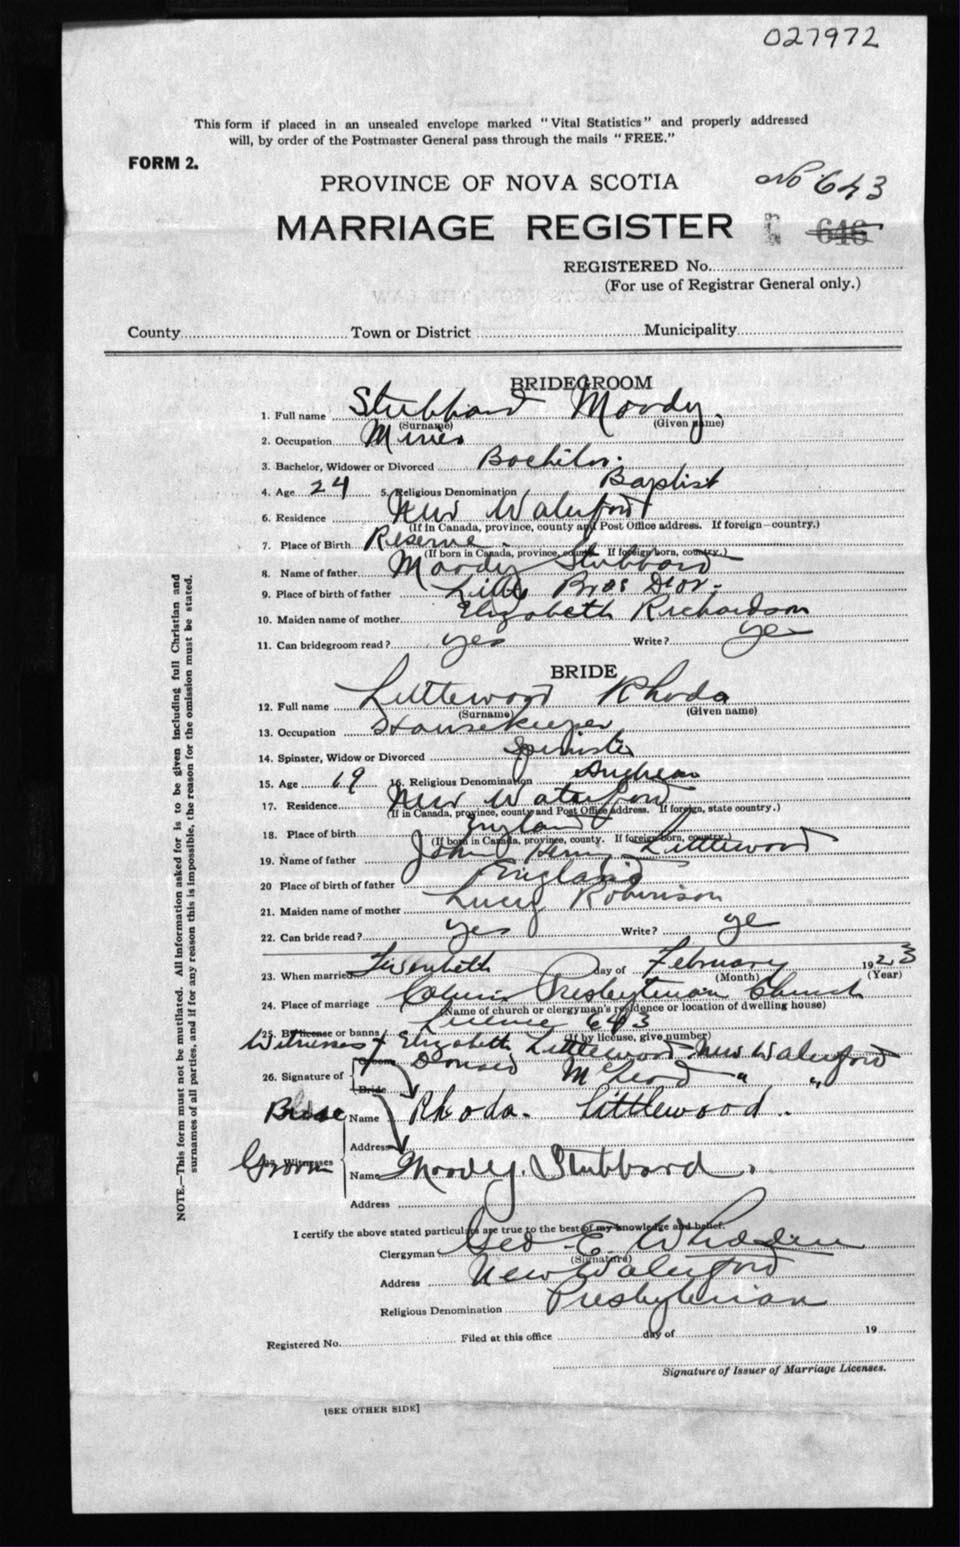 027972
This form if placed in an unsealed envelope marked "Vital Statistics" and properly addressed
will, by order of the Postmaster General pass through the mails "FREE."
FORM 2.
PROVINCE OF NOVA SCOTIA
No 643
MARRIAGE REGISTER
646
REGISTERED No.
(For use of Registrar General only.)
County Town or District Municipality
BRIDEGROOM
1. Full name Stubbard Moody.
(Surname) (Given name)
2. Occupation Miner
3. Bachelor, Widower or Divorced Bachelor.
4. Age 24 5. Religious Denomination Baptist
6. Residence New Waterford
(If in Canada, province, county and Post Office address. If foreign—country.)
7. Place of Birth Reserve.
(If born in Canada, province, county. If foreign born, country.)
8. Name of father Moody Stubbard
9. Place of birth of father Little Bras Dor.
10. Maiden name of mother Elizabeth Richardson
11. Can bridegroom read? yes Write? yes
BRIDE
12. Full name Littlewood Rhoda
(Surname) (Given name)
13. Occupation Housekeeper
14. Spinster, Widow or Divorced Spinster
15. Age 19 16. Religious Denomination
17. Residence New Waterford
(If in Canada, province, county and Post Office address. If foreign, state country.)
18. Place of birth England
(If born in Canada, province, county. If foreign born, country.)
19. Name of father John Henry Littlewood
20 Place of birth of father England
21. Maiden name of mother Lucy Robinson
22. Can bride read? yes Write? ye
23. When married day of February 1923
(Month) (Year)
24. Place of marriage Calvin Presbyterian Church
(Name of church or clergyman's residence or location of dwelling house)
25. By license or banns License 643
(If by license, give number)
Witnesses Elizabeth Littlewood New Waterford
26. Signature of Groom McLeod " "
Bride
Bride Name Rhoda. Littlewood.
Address
Groom
27. Witnesses Name Moody. Stubbard.
Address
I certify the above stated particulars are true to the best of my knowledge and belief.
Clergyman Geo. E. Whidden
(Signature)
Address New Waterford
Religious Denomination Presbyterian
Registered No. Filed at this office day of 19
Signature of Issuer of Marriage Licenses.
[SEE OTHER SIDE]
NOTE.—This form must not be mutilated. All information asked for is to be given including full Christian and
surnames of all parties, and if for any reason this is impossible, the reason for the omission must be stated.